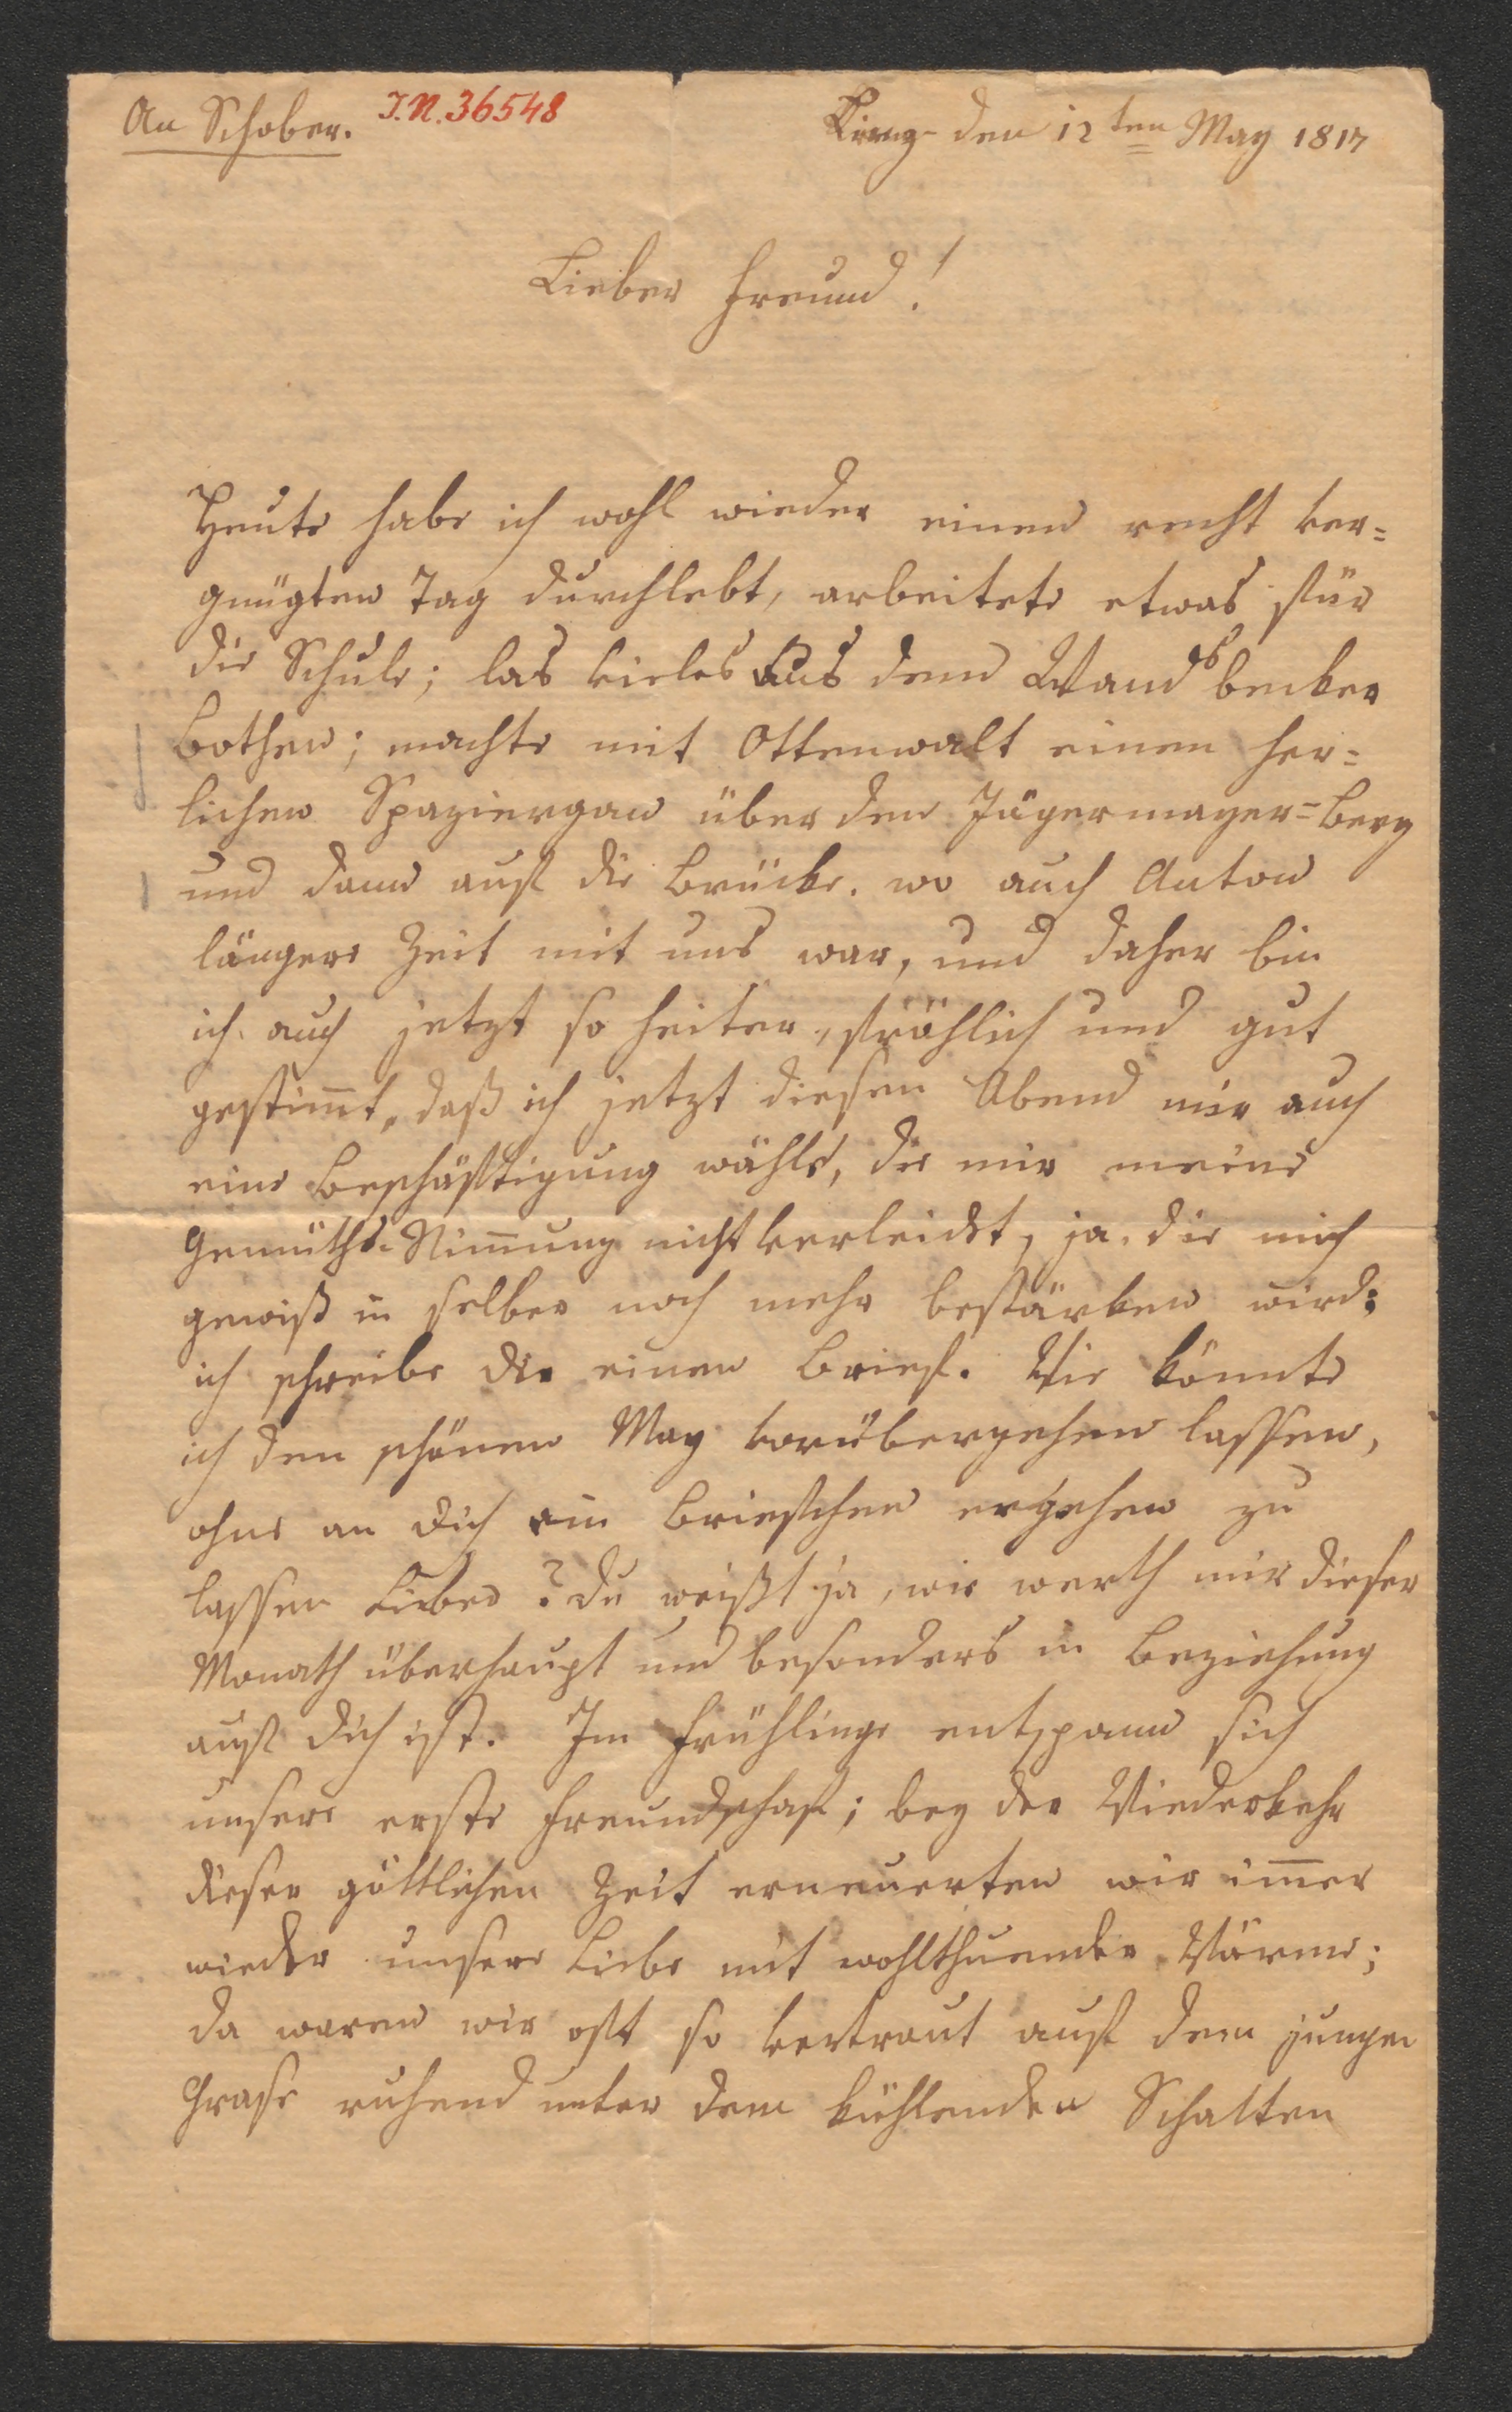 An Schober. I.N. 36548
den 12ten May 1817
Lieber Freund!
Heute habe ich wohl wieder einen recht ver=
gnügten Tag durchlebt, arbeitete etwas für
die Schule; las vieles aus dem Wandsbecker
Bothen; machte mit Ottenwalt einen her=
lichen Spaziergan über den Jägermayer=Berg
und dann auf die Brücke. wo auch Anton
längere Zeit mit uns war, und daher bin
ich auch jetzt so heiter, fröhlich und gut
gestim̅t, daß ich jetzt diesen Abend mir auch
eine Beschäftigung wähle, die mir meine
Gemüths-Stim̅ung nicht verleidet, ja, die mich
gewiß in selber noch mehr bestärken wird:
ich schreibe dir einen Brief. Wie könnte
ich den schönen May vorübergehen lassen,
ohne an dich ein Briefchen ergehen zu
lassen Lieber? Du weißt ja, wie werth mir dieser
Monath überhaupt und besonders in Beziehung
auf dich ist. Im Frühlinge entspann sich
unsere erste Freundschaft; bey der Wiederkehr
dieser göttlichen Zeit erneuerten wir im̅er
wieder unsere Liebe mit wohlthuender Wärme;
da waren wir oft so vertraut auf dem jungen
Grase ruhend unter dem kühlenden Schatten